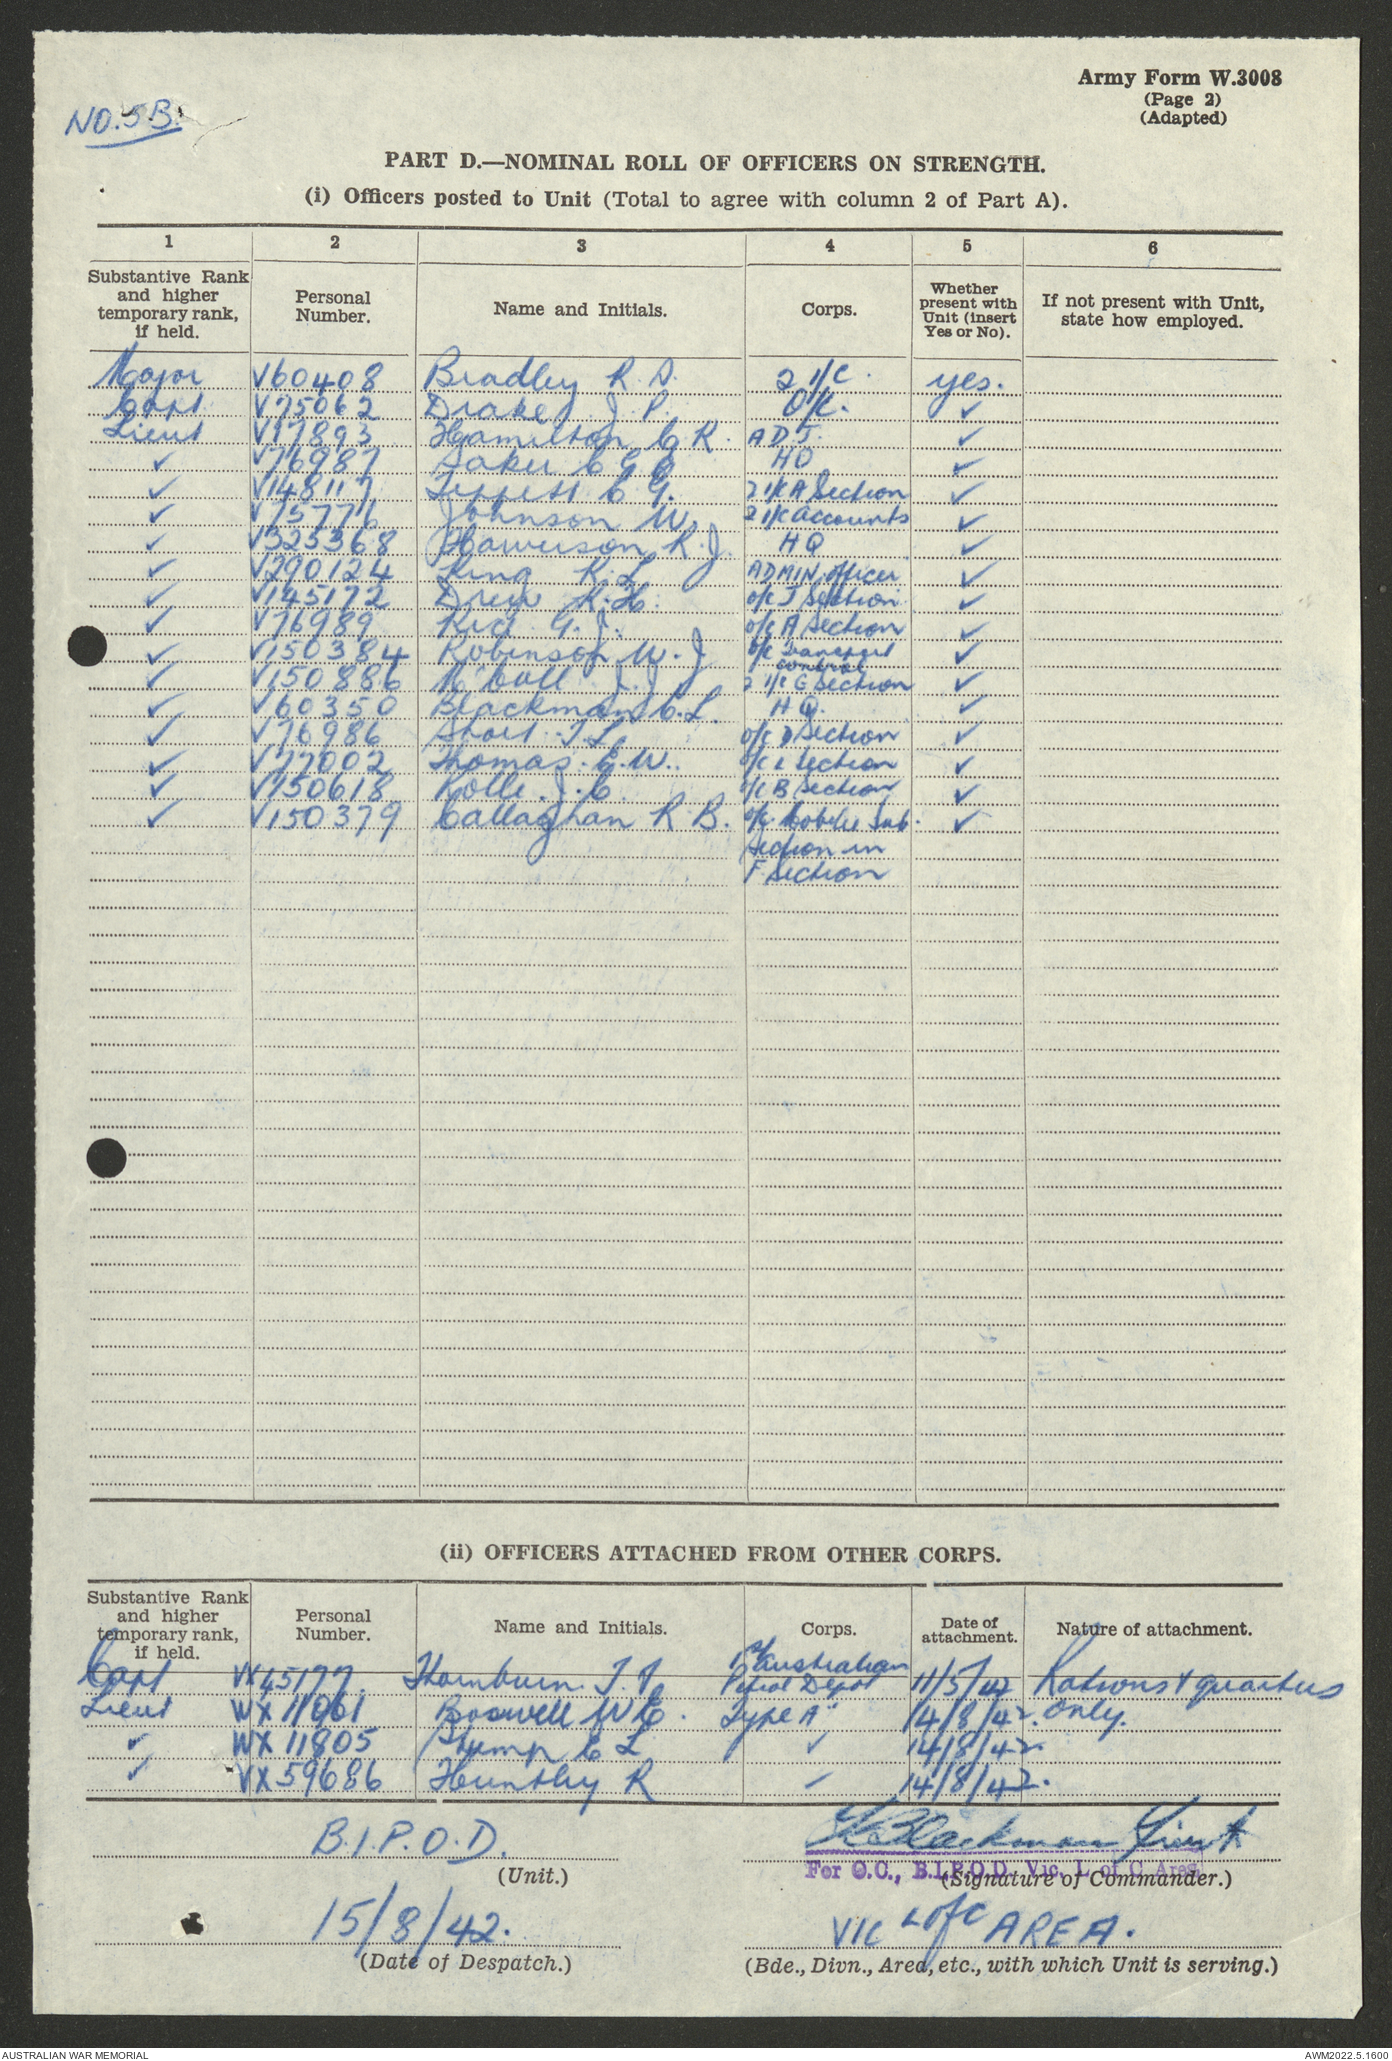 Army Form W.3008
(Page 2)
(Adapted)
NO. 5B.
PART D.—NOMINAL ROLL OF OFFICERS ON STRENGTH.
(i) Officers posted to Unit (Total to agree with column 2 of Part A).
1 2 3 4 5 6
Substantive Rank and higher temporary rank, if held. Personal Number. Name and Initials. Corps. Whether present with Unit (insert Yes or No). If not present with Unit, state how employed.
Major V60408 Bradley R. 2 I/C. yes.
Capt V75062 Drake J. P. O/C. ✓
Lieut V17893 Hamilton C R. ADJ. ✓
✓ V76987 C G HQ ✓
✓ V148117 Tippett C. G. 2 I/C A Section ✓
✓ V75776 Johnson W. 2 I/C accounts ✓
✓ V325368 R. J. HQ ✓
✓ V290124 King R. L ADMIN. officer ✓
✓ V145172 Drew K. H. O/C J Section ✓
✓ V76989 G. J. O/C A Section ✓
✓ V150384 Robinson W. J O/C Transport control ✓
✓ V150886 McCall J. J 2 I/C G Section ✓
✓ V60350 Blackman C. L. HQ. ✓
✓ V76986 Short T L. O/C D Section ✓
✓ V77002 Thomas. C. W.. O/C L Section ✓
✓ V150618 J. C. O/C B Section ✓
✓ V150379 Callaghan R B. O/C. Mobile Sub. ✓
Section in
F Section
(ii) OFFICERS ATTACHED FROM OTHER CORPS.
Substantive Rank and higher temporary rank, if held. Personal Number. Name and Initials. Corps. Date of attachment. Nature of attachment.
Capt VX45177. Thornburn. T. 1st Australian Petrol Depot 11/5/42 Rations & quarters
Lieut WX 11061 Boswell W E. Type "A" 14/8/42. only.
✓ WX 11805 C L ✓ 14/8/42.
✓ VX 59686 Huntley R ✓ 14/8/42.
B.I.P.O.D.
(Unit.)
Blackman Lieut
For O.C., B.I.P.O.D. Vic. L of C Area
(Signature of Commander.)
15/8/42.
(Date of Despatch.)
VIC L of C AREA.
(Bde., Divn., Area, etc., with which Unit is serving.)
AUSTRALIAN WAR MEMORIAL
AWM2022.5.1600